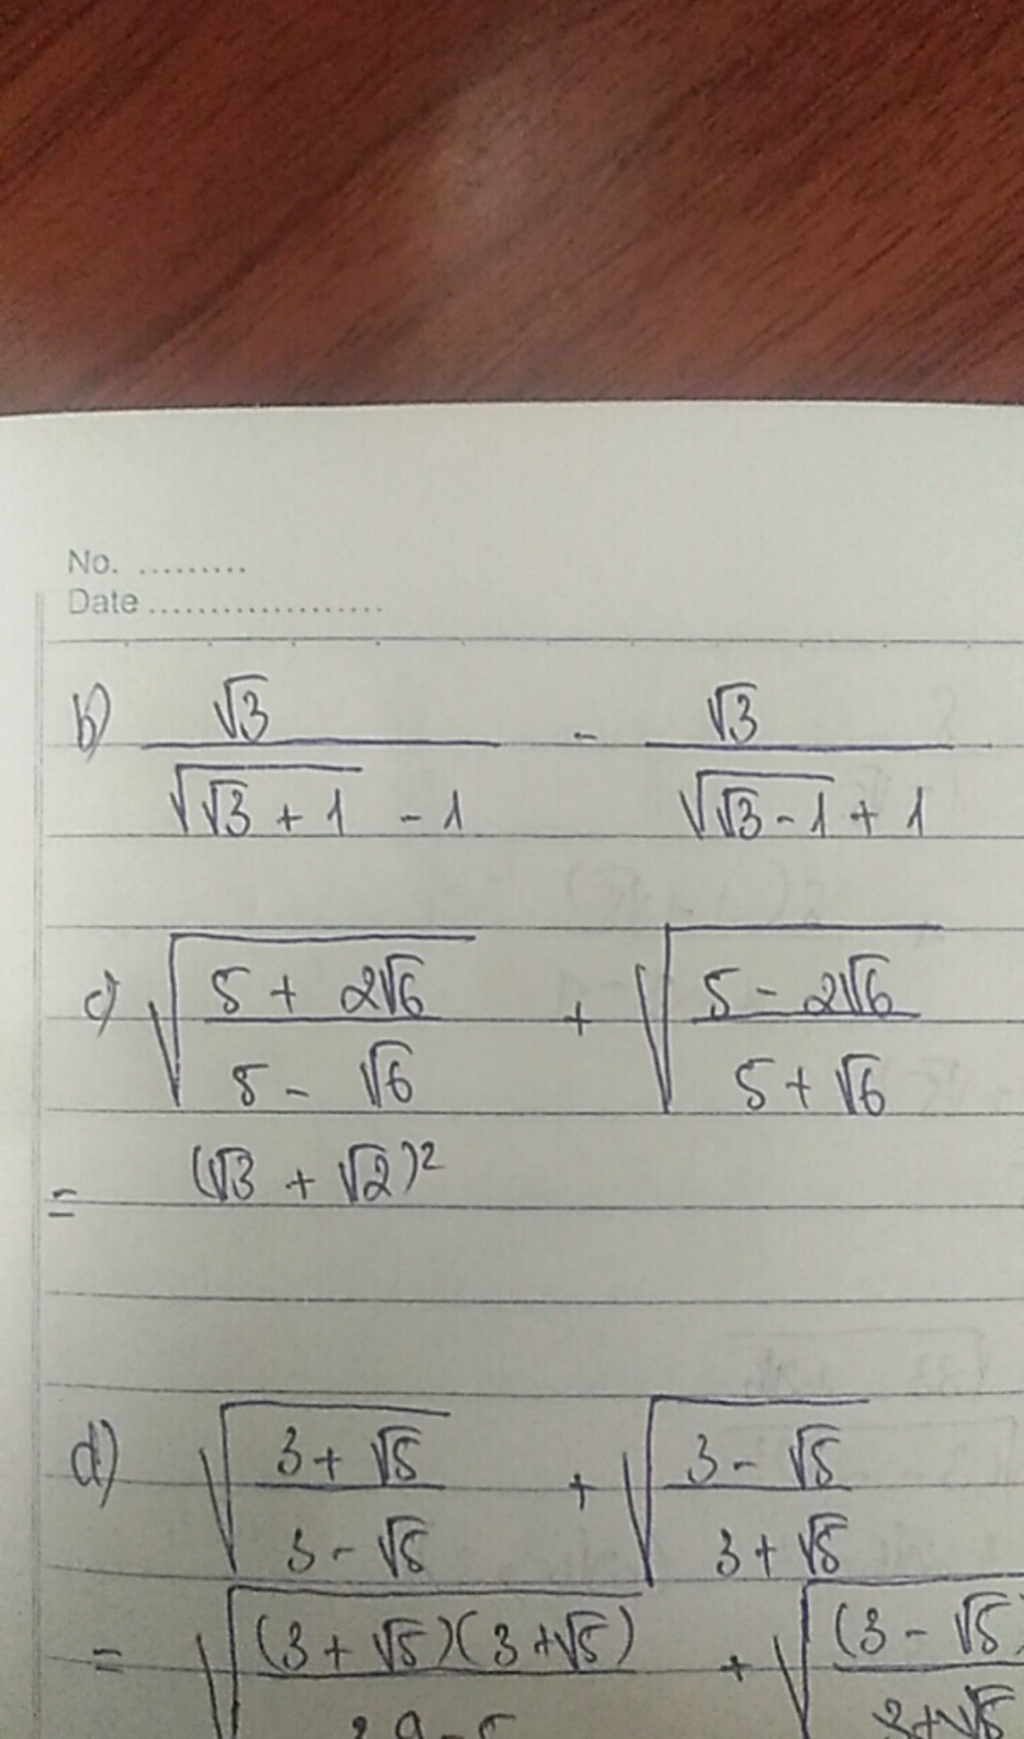 No. .........
Date ....................
b) √3 / (√(√3 + 1) - 1) - √3 / (√(√3 - 1) + 1)
c) √((5 + 2√6) / (5 - √6)) + √((5 - 2√6) / (5 + √6))
= (√3 + √2)²
d) √((3 + √5) / (3 - √5)) + √((3 - √5) / (3 + √5))
= √((3 + √5)(3 + √5) / 9 - 5) + √((3 - √5) / 3 + √5